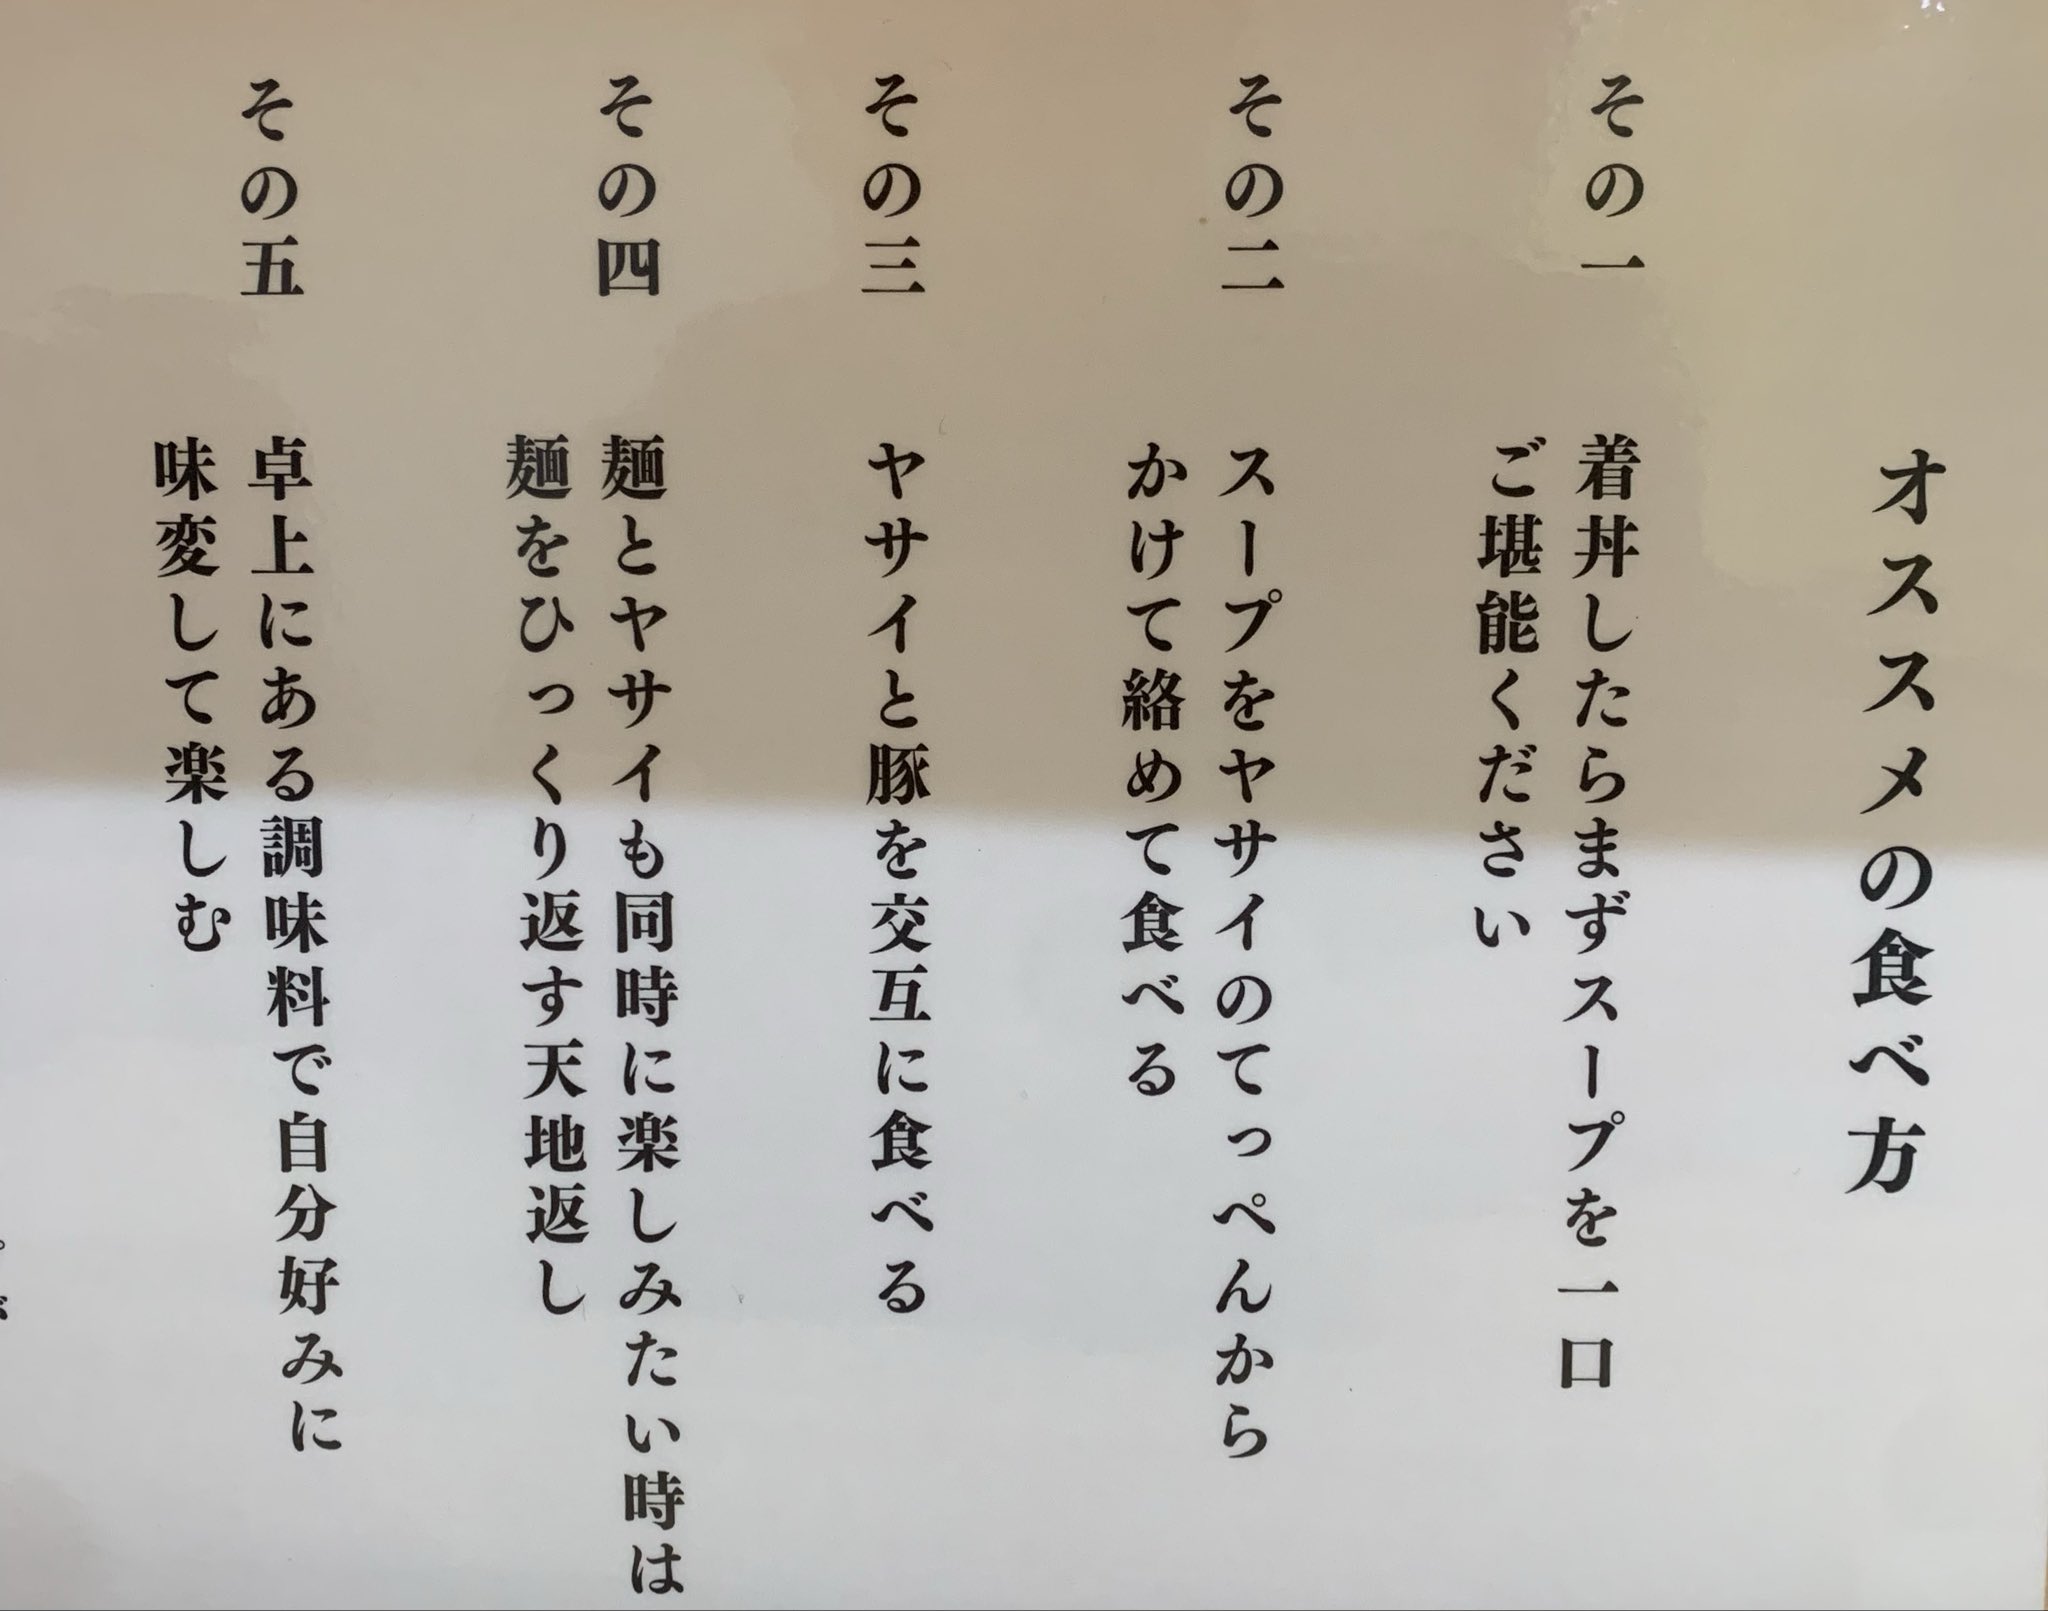 オススメの食べ方
その一
着丼したらまずスープを一口
ご堪能ください
その二
スープをヤサイのてっぺんから
かけて絡めて食べる
その三
ヤサイと豚を交互に食べる
その四
麺とヤサイも同時に楽しみたい時は
麺をひっくり返す天地返し
その五
卓上にある調味料で自分好みに
味変して楽しむ